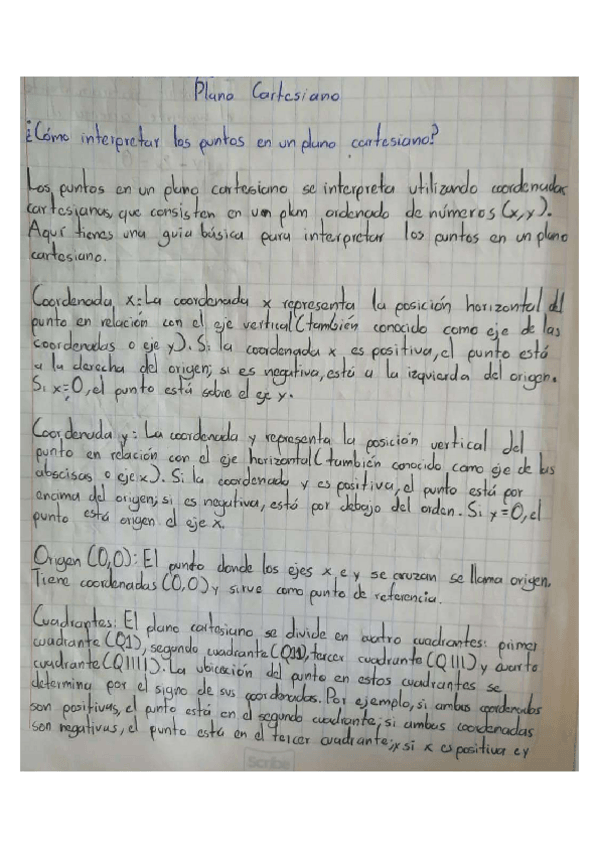 Plano Cartesiano
¿Cómo interpretar los puntos en un plano cartesiano?
Los puntos en un plano cartesiano se interpreta utilizando coordenadas
cartesianas, que consisten en un ordenado de números (x,y).
Aquí tienes una guía básica para interpretar los puntos en un plano
cartesiano.
Coordenada x: La coordenada x representa la posición horizontal del
punto en relación con el eje vertical (también conocido como eje de las
coordenadas o eje y). Si la coordenada x es positiva, el punto está
a la derecha del origen; si es negativa, está a la izquierda del origen.
Si x=0, el punto está sobre el eje y.
Coordenada y: La coordenada y representa la posición vertical del
punto en relación con el eje horizontal (también conocido como eje de las
abscisas o eje x). Si la coordenada y es positiva, el punto está por
encima del origen; si es negativa, está por debajo del orden. Si y=0, el
punto está origen el eje x.
Origen (0,0): El punto donde los ejes x e y se cruzan se llama origen.
Tiene coordenadas (0,0) y sirve como punto de referencia.
Cuadrantes: El plano cartesiano se divide en cuatro cuadrantes: primer
cuadrante (Q1), segundo cuadrante tercer cuadrante (QIII) y cuarto
cuadrante (QIIII). La ubicación del punto en estos cuadrantes se
determina por el signo de sus coordenadas. Por ejemplo, si ambas coordenadas
son positivas, el punto está en el segundo cuadrante; si ambas coordenadas
son negativas, el punto está en el tercer cuadrante; si x es positiva e y
Scribe